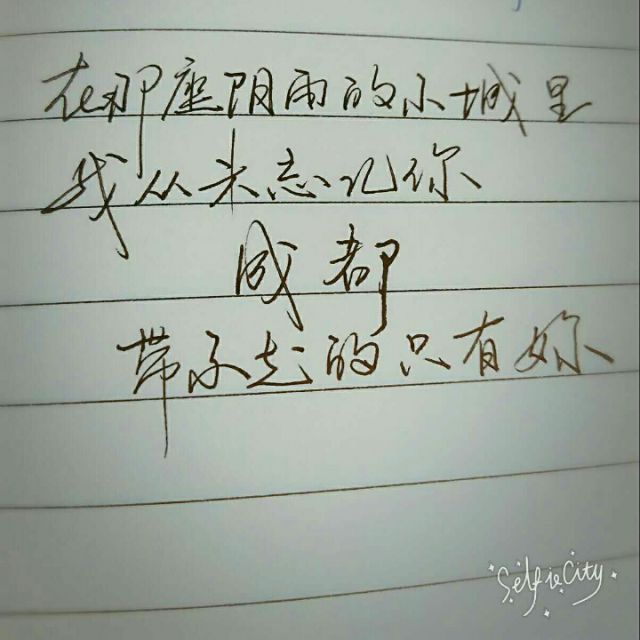 在那座阴雨的小城里
我从未忘记你
成都
带不走的只有妳
SelfieCity